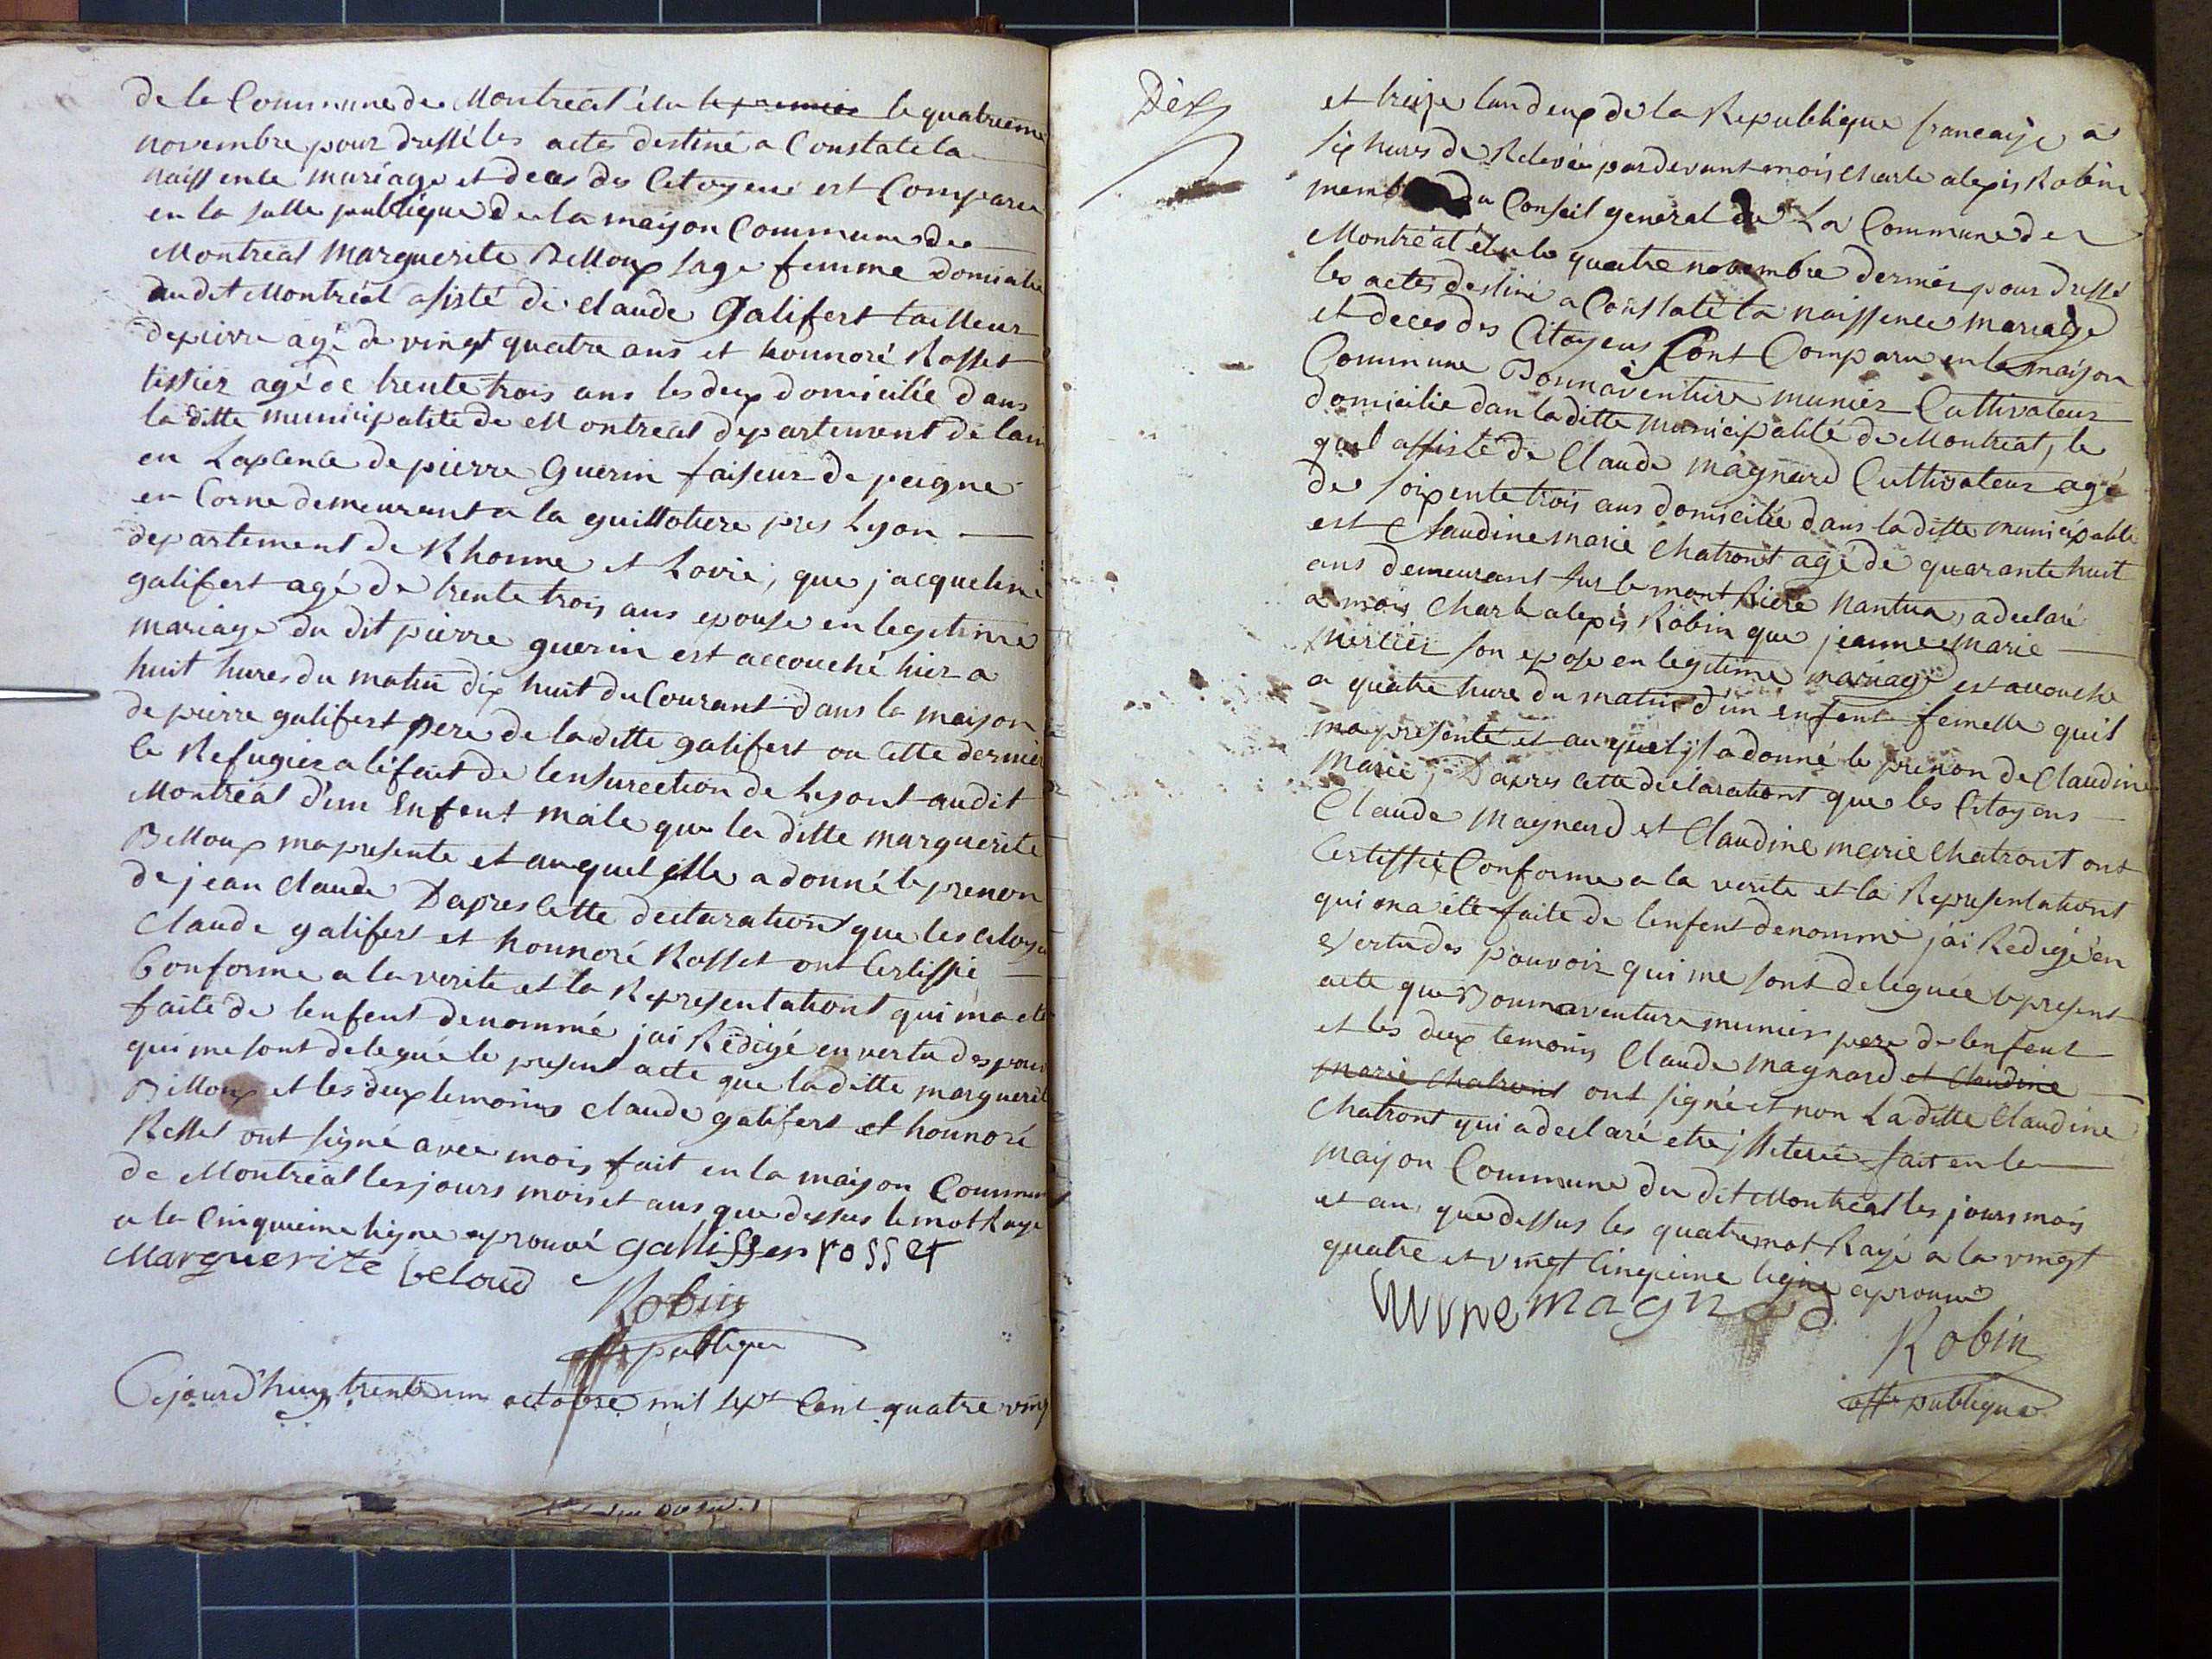 de la Commune de Montreal élu le premier le quatrieme
novembre pour dressé les actes destiné a Constaté la
naissence mariage et deces des Citoyens est Comparue
en la salle publique de la maison Commune de
Montreal Marguerite Billoux sage femme domicilie
au dit Montréal asisté de claude Galifert tailleur
de pierre agé de vingt quatre ans et honnoré Rosset
tissier agé de trente trois ans les deux domicilié dans
la ditte municipalité de Montreal departement de lain
en Laxence de pierre Guerin faiseur de peigne
en Corne demeurant a la guillotiere pres Lyon
departement de Rhonne et Loire, que jacqueline
galifert agé de trente trois ans epouse en legitime
mariage du dit pierre guerin est accouché hier a
huit hures du matin dix huit du Courant dans la maison
de pierre galifert pere de la ditte galifert ou cette dernier
ce Refugier a léfait de lensurection de Lyont audit
Montréal d'un Enfent mâle que la ditte marguerite
Billoux ma presente et auquel elle a donné le prenon
de jean claude Dapres Cette declaration que les citoy
Claude galifert et honnoré Rosset ont Certiffié
Conforme a la verite et la Representationt qui ma eté
faite de lenfent denommé jai Redigé en vertu des pouv
qui me sont delegué le present acte que la ditte marguerit
Billoux et les deux temoins claude galifert et honnoré
Rosset ont signé avec mois fait en la maison Commun
de Montréal les jours mois et ans que dessus le mot Raye
a la Cinquieme ligne aprouvé galliffer rosset
Marguerite beloud
Robin
offr publique
Cejourd'huy trente un octobre mil sept Cent quatre ving
Dèxz
et treize lan deux de la Republique francaise a
six hures de Relevée pardevant mois charle alexis Robin
memb du Conseil general de La Commune de
Montréal élu le quatre novembre dernier pour dressé
les actes destiné a Constaté la naissence mariage
et deces des Citoyens Sont Comparu en la maison
Commune Bonnaventure munier Cultivateur
domicilie dan la ditte municipalité de Montreal, le
quel assisté de Claude magnard Cultivateur agé
de soixente trois ans domicilié dans la ditte municipalité
est Claudine marie Chatront agé de quarante huit
ans demeurant sur le mont Riere nantua, a declaré
a mois Charle alexis Robin que jeanne marie
mertier son epose en legitime mariage est accouché
a quatre hure du matin d'un enfent femelle quil
ma presenté et au quel il a donné le prenon de Claudine
Marie, D'apres Cette declarationt que les Citoyens
Claude magnard et Claudine marie Chatront ont
Certiffié Conforme a la verite et la Representationt
qui ma été faite de lenfent denommé jai Redigé en
vertu des pouvoir qui me sont deleguée le present
acte que Bonnaventure munier pere de lenfent
et les deux temoins Claude magnard et Claudine
marie chatront ont signé et non La ditte Claudine
Chatront qui a declaré etre illeteré fait en la
maison Commune du dit Montréal les jours mois
et an que dessus les quatre mot Rayé a la vingt
quatre et vingt Cinquieme ligne aprouvé
magnard
Robin
offr publique